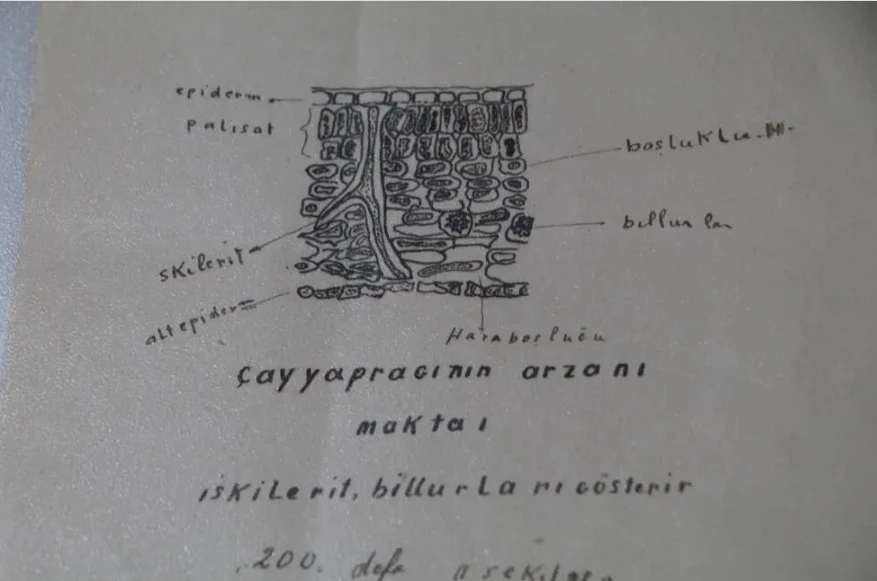 epiderm
palisat
boşluklu. H.
billurlar
skilerit
alt epiderm
Hava boşluğu
Çay yapragının arzanı
maktaı
iskilerit, billurları gösterir
200. defa